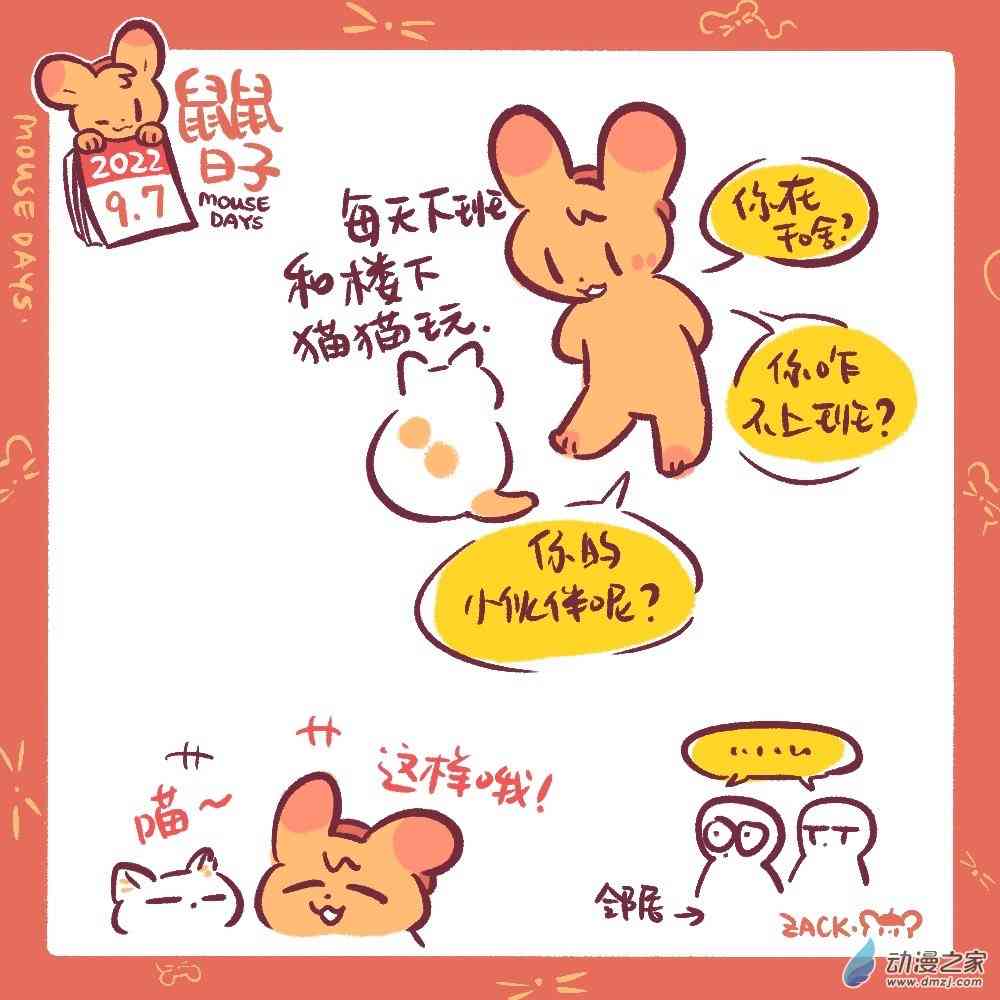 MOUSE DAYS.
2022
9.7
鼠鼠
日子
MOUSE
DAYS
每天下班
和楼下
猫猫玩.
你在
干啥?
你咋
不上班?
你的
小伙伴呢?
喵~
这样哦!
......
邻居→
ZACK.
动漫之家
www.dmzj.com